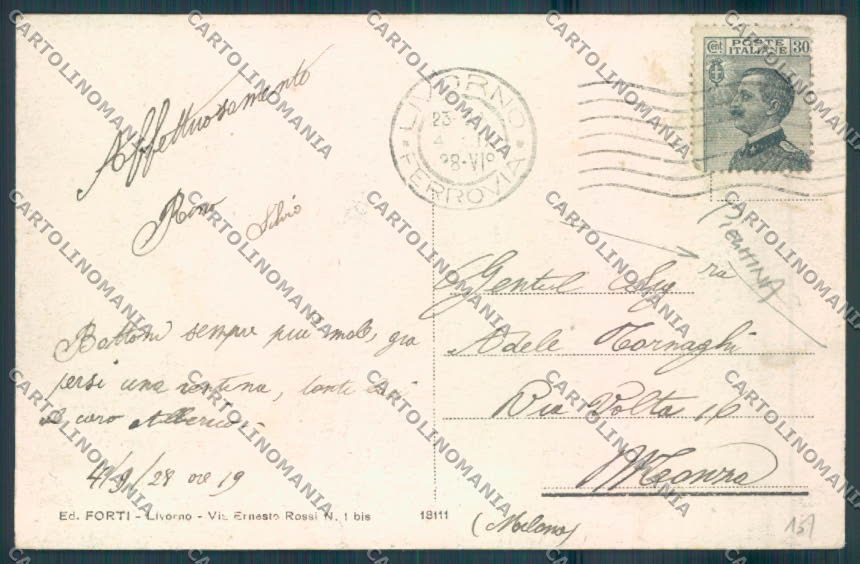 Affettuosamente
Rino Silvio
Bottoni sempre più male, già
persi una ventina, tanti baci
al caro Alberico
4/9/28 ore 19
Ed. FORTI - Livorno - Via Ernesto Rossi N. 1 bis
18111
LIVORNO
FERROVIA
23-
4
28·VIº
Cent. POSTE ITALIANE 30
Gentil Sig ra
Adele Tornaghi
Via Volta 16
Monza
(Milano)
137
CARTOLINOMANIA